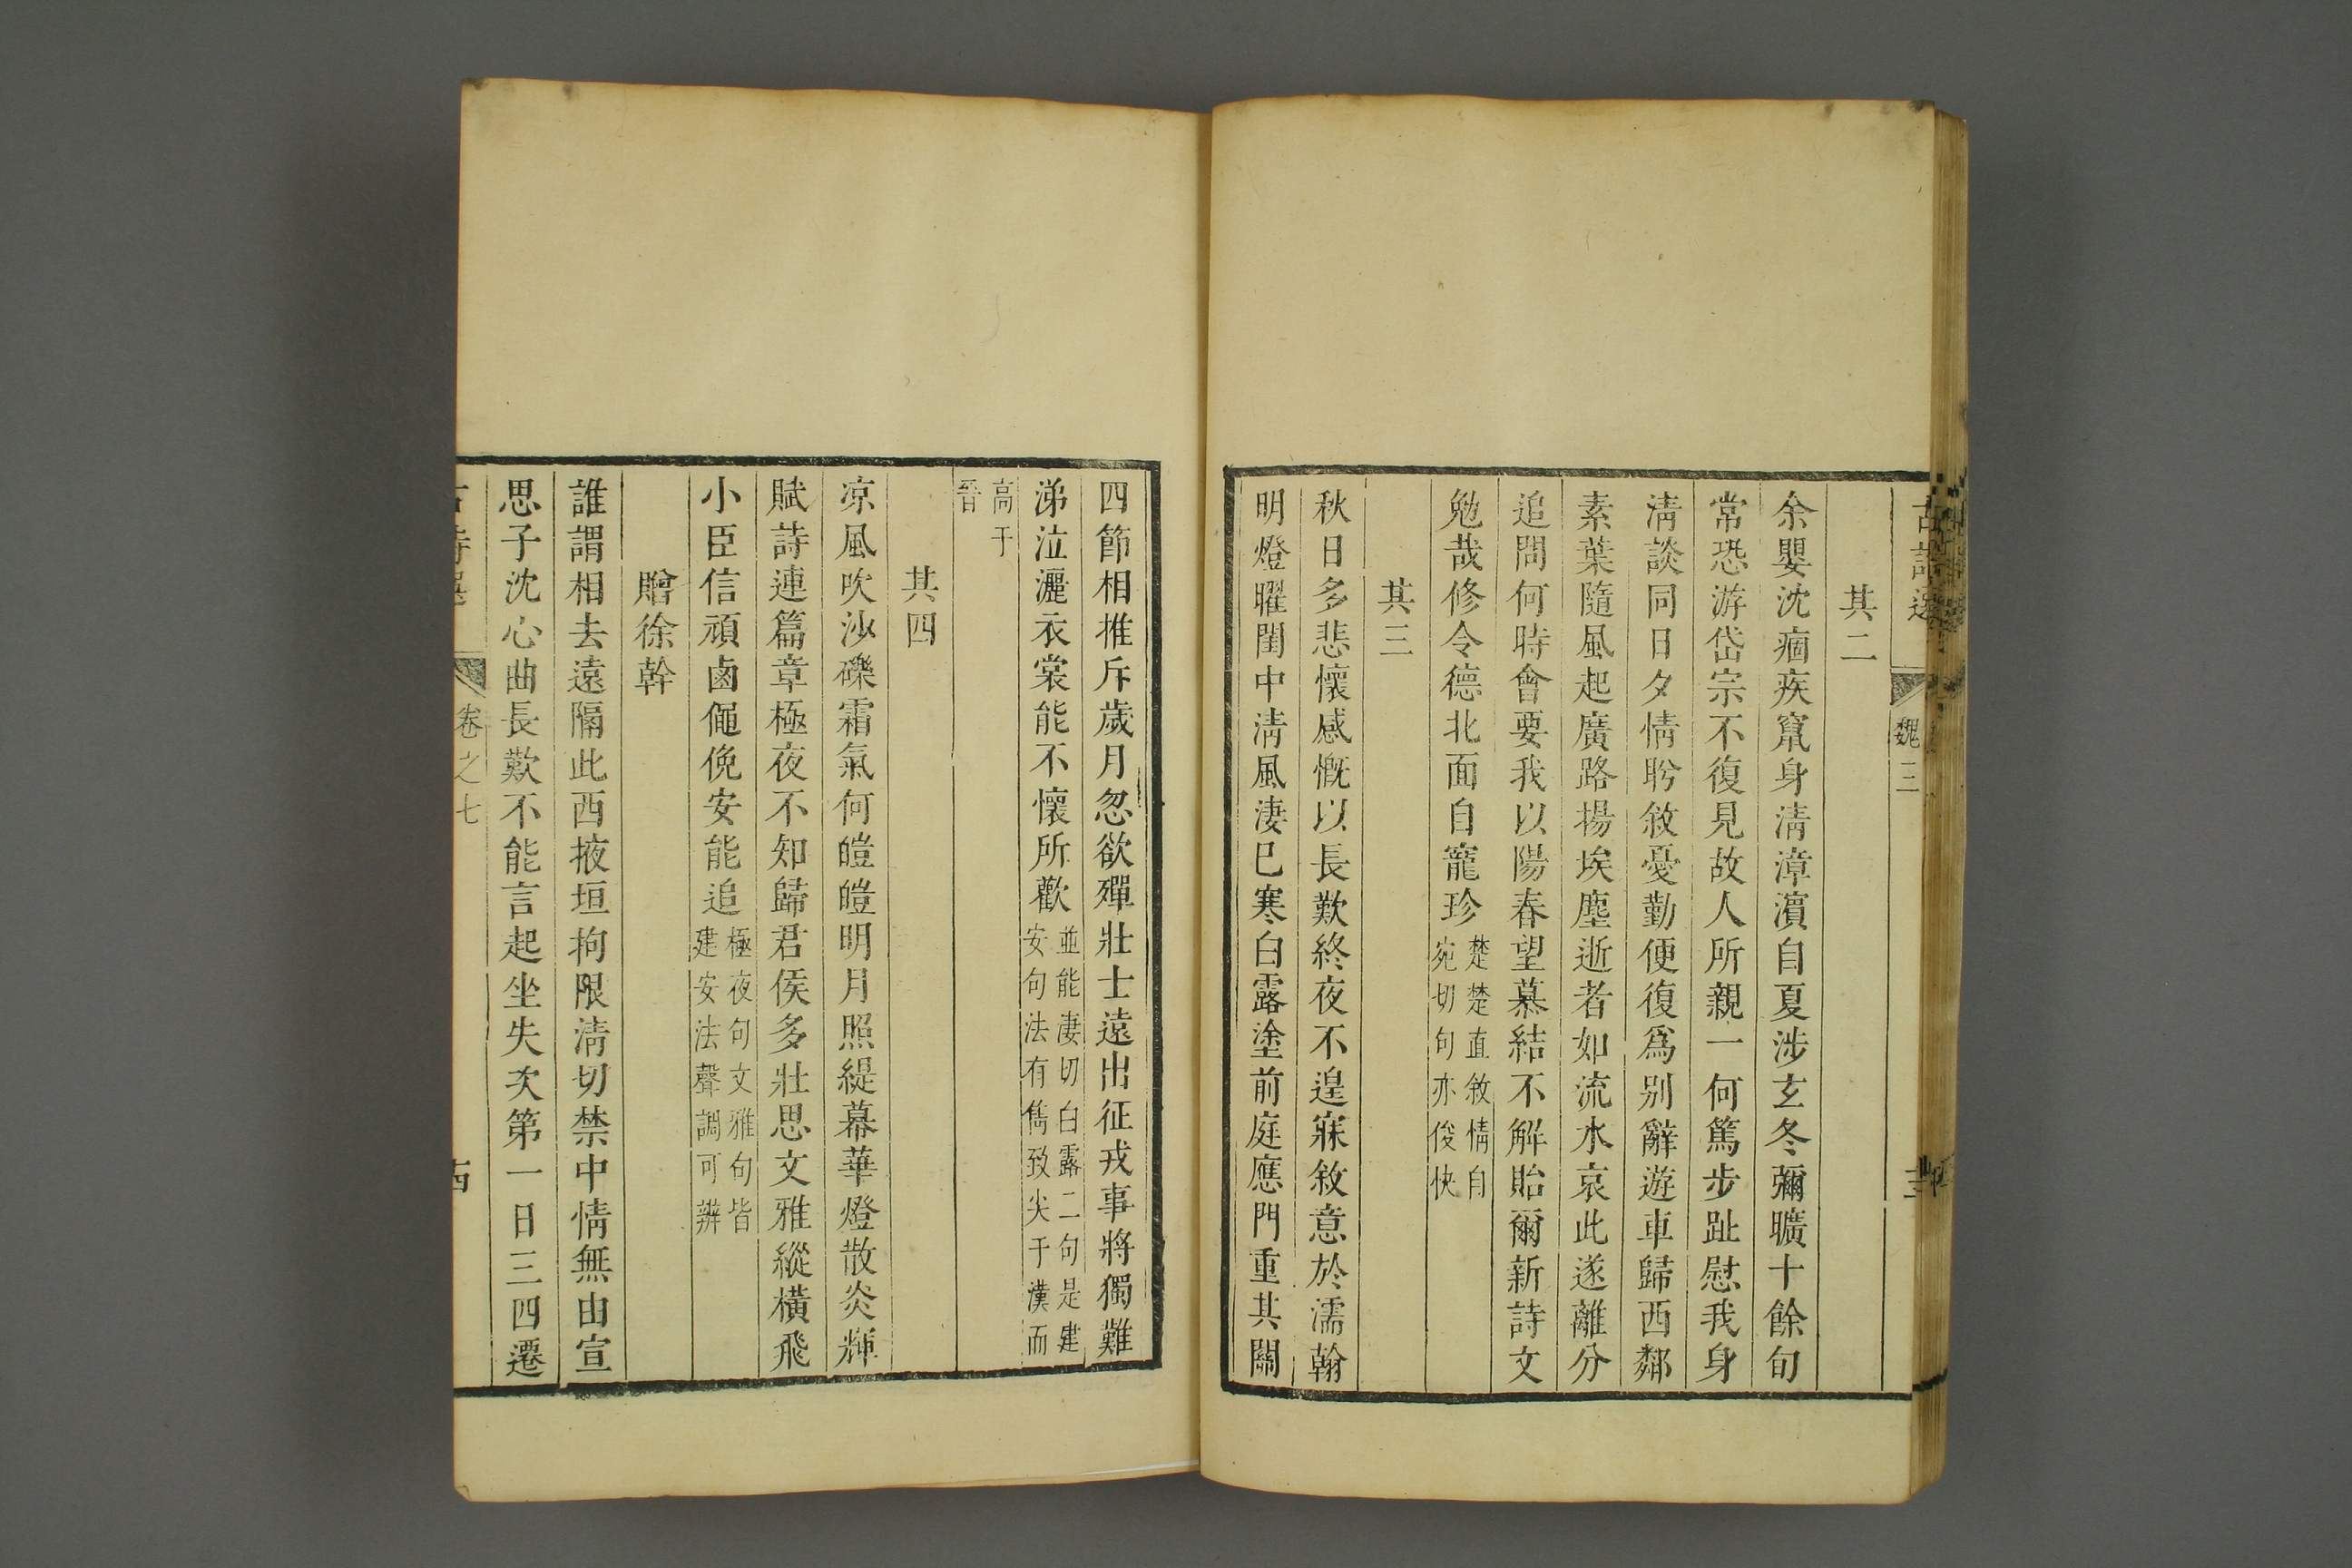 魏三
其二
余嬰沈痼疾竄身淸漳濵自夏涉玄冬彌曠十餘旬
常恐游岱宗不復見故人所親一何篤步趾慰我身
淸談同日夕情盻敘憂勤便復爲别辭遊車歸西鄰
素葉隨風起廣路揚埃塵逝者如流水哀此遂離分
追問何時會要我以陽春望慕結不解貽爾新詩文
勉哉修令德北面自寵珍
楚楚直敘情自
宛切句亦俊快
其三
秋日多悲懷感慨以長歎終夜不遑寐敘意於濡翰
明燈曜閨中淸風淒已寒白露塗前庭應門重其關
四節相推斥歲月忽欲殫壯士遠出征戎事將獨難
涕泣灑衣裳能不懷所歡
並能淒切白露二句是建
安句法有雋致尖于漢而
高于
晉
其四
凉風吹沙礫霜氣何皚皚明月照緹幕華燈散炎輝
賦詩連篇章極夜不知歸君侯多壯思文雅縱橫飛
小臣信頑鹵僶俛安能追
極夜句文雅句皆
建安法聲調可辨
贈徐幹
誰謂相去遠隔此西掖垣拘限淸切禁中情無由宣
思子沈心曲長歎不能言起坐失次第一日三四遷
古詩選
卷之七